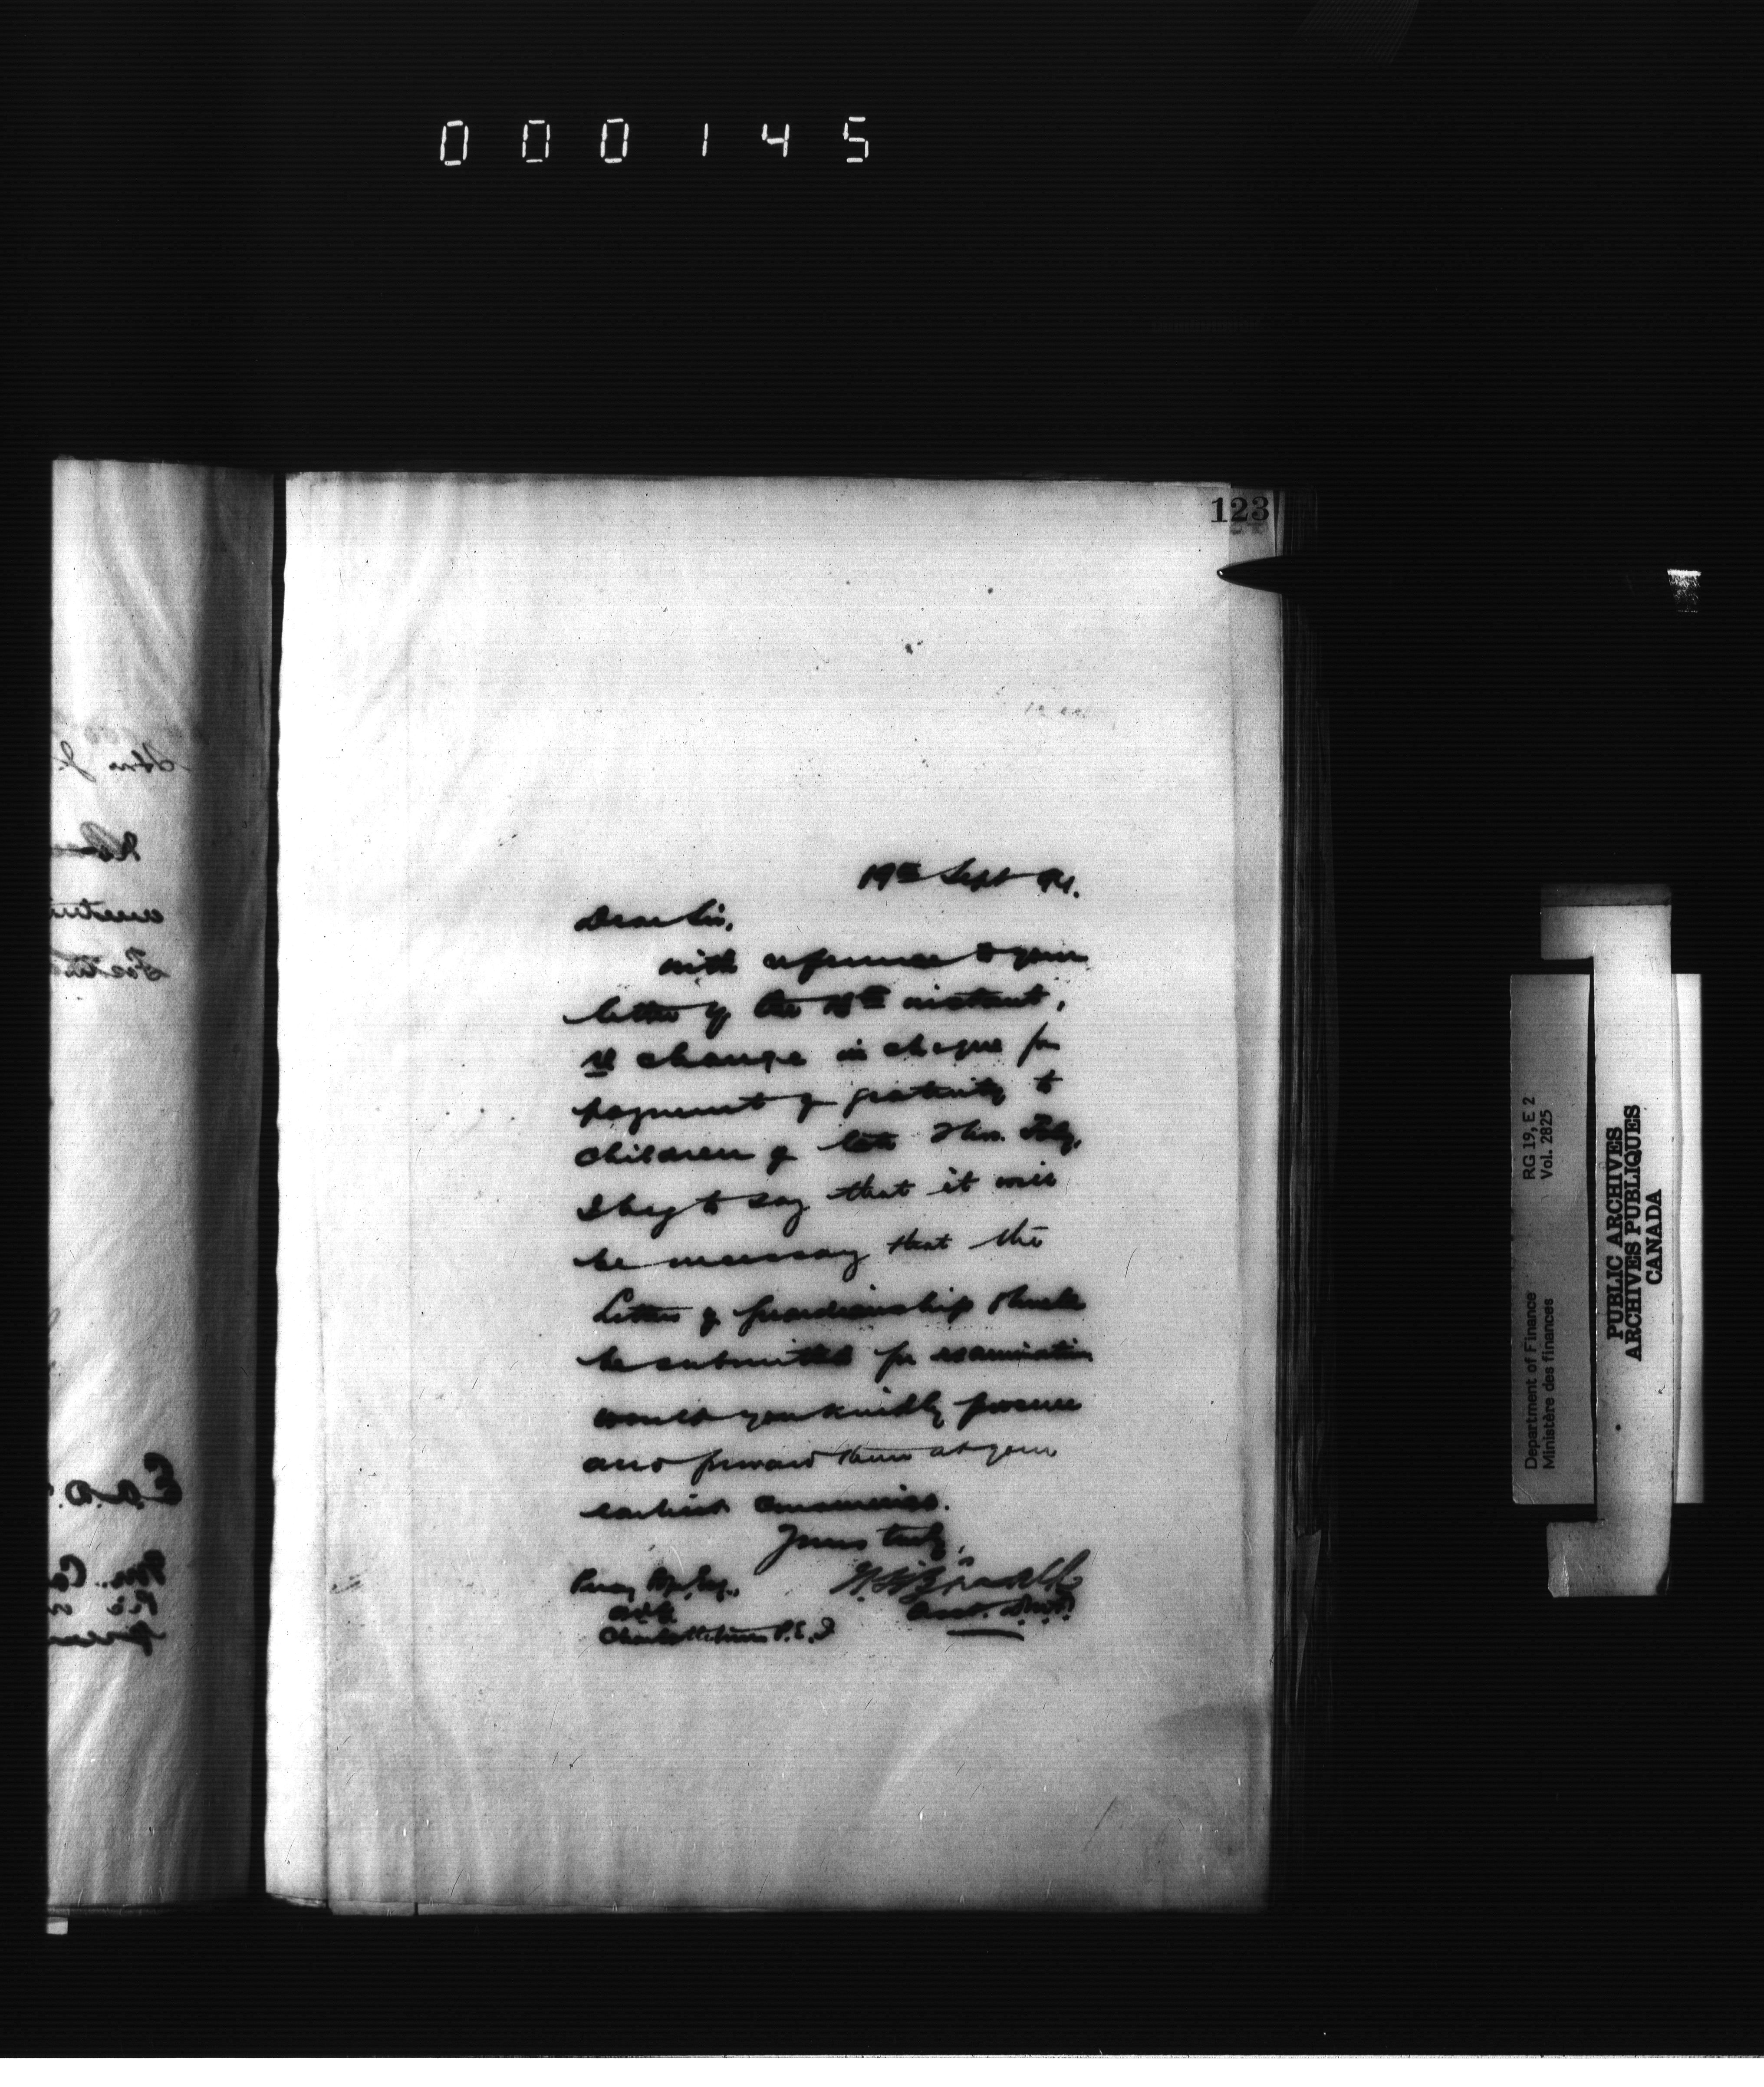 000145
123
19th Sept 91.
Dear Sir,
with reference to your
letter of the 15th instant,
re change in cheque for
payment of gratuity to
children of late Thos. Foley,
I beg to say that it will
be necessary that the
Letters of Guardianship should
be submitted for examination
would you kindly procure
and forward them at your
earliest convenience.
Yours truly,
Percy Esq.,
Asst.
Charlottetown P.E.I
Department of Finance RG 19, E 2
Ministère des finances Vol. 2825
PUBLIC ARCHIVES
ARCHIVES PUBLIQUES
CANADA